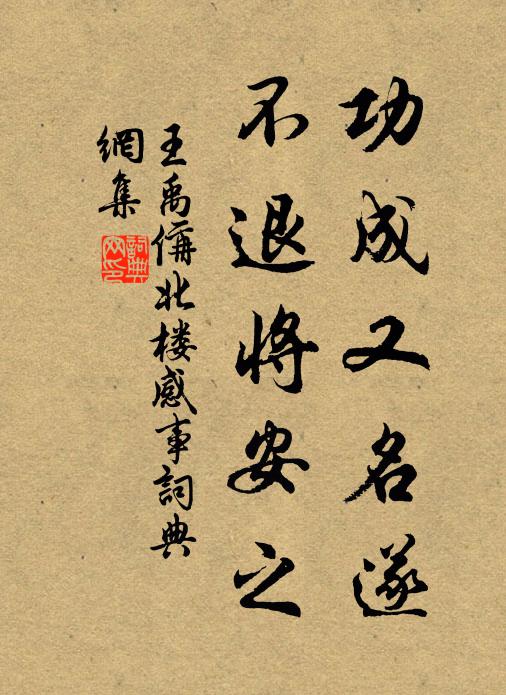 功成又名遂
不退将安之
王禹偁北楼感事词典
網集
詞典
网印